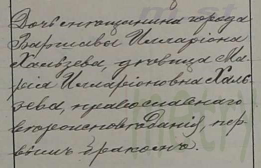 Дочь мещанина города
Варшавы Илларіона
Хальзева, дѣвица Ма-
рія Илларіоновна Халь-
зева, православнаго
вѣроисповѣданія, пер-
вымъ бракомъ.